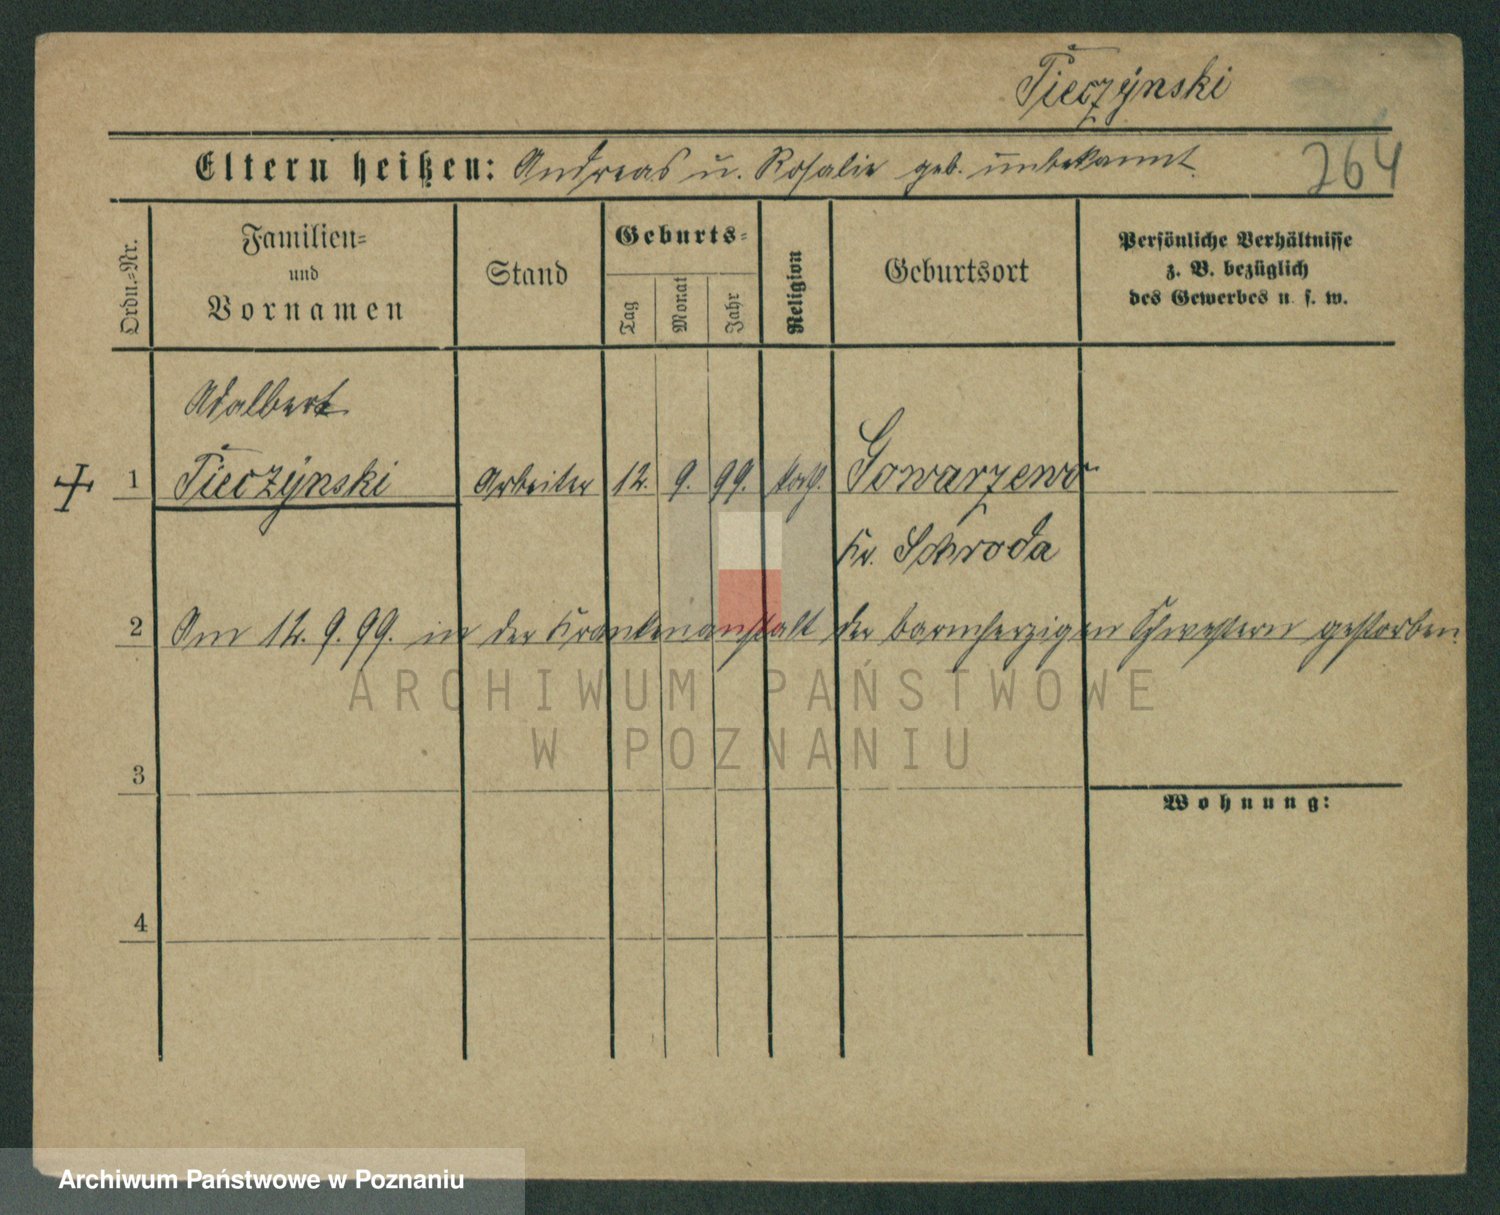 Tieczynski
Eltern heißen: Andreas u. Rosalie geb. unbekannt
264
Ordn.-Nr.
Familien-
und
Vornamen
Stand
Geburts-
Tag
Monat
Jahr
Religion
Geburtsort
Persönliche Verhältnisse
z. B. bezüglich
des Gewerbes u. s. w.
Adalbert
1 Tieczynski Arbeiter 12. 9. 99. kath. Gowarzewo
Kr. Schroda
2 Am 12. 9. 99. in der Krankenanstalt der barmherzigen Schwestern gestorben.
ARCHIWUM PAŃSTWOWE
W POZNANIU
3
Wohnung:
4
Archiwum Państwowe w Poznaniu